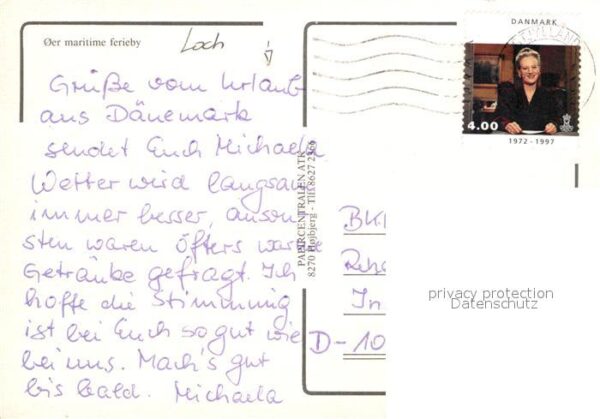 Øer maritime ferieby
Loch
DANMARK
4.00
1972 - 1997
Grüße vom Urlaub
aus Dänemark
sendet Euch Michaela
Wetter wird langsam
immer besser, anson
sten waren öfters warme
Getränke gefragt. Ich
hoffe die Stimmung
ist bei Euch so gut wie
bei uns. Mach's gut
bis bald. Michaela
PAPIRCENTRALEN ATK
8270 Højbjerg - Tlf. 8627 2
BK
Reha
In
D-10
privacy protection
Datenschutz